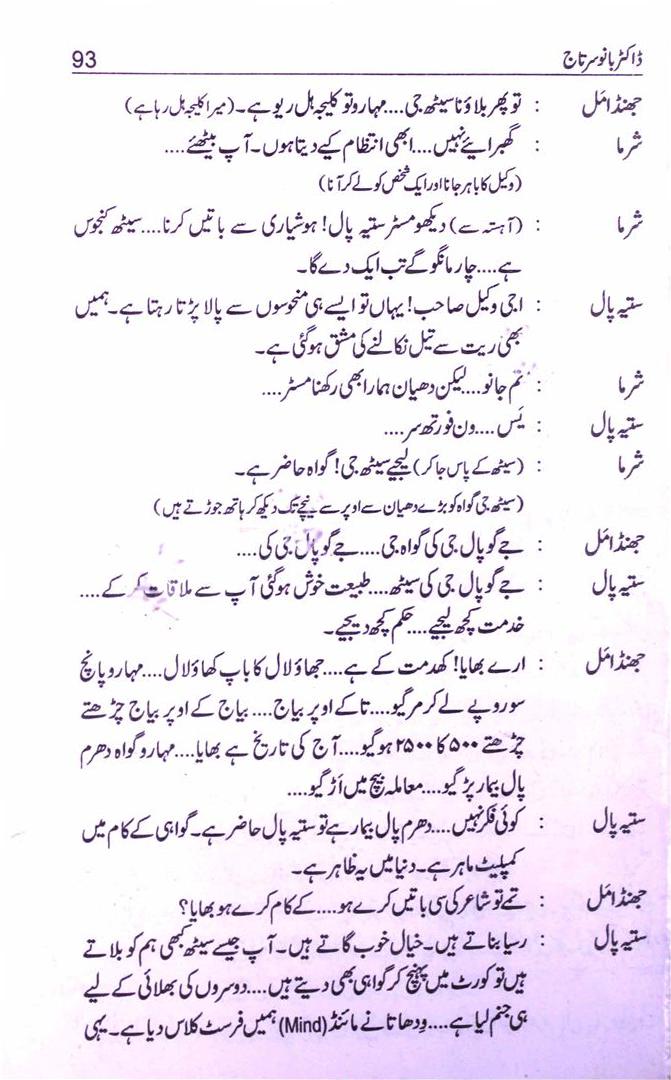 ڈاکٹر بانو سرتاج 93
جھنڈا مَل : تو پھر بلاؤ نا سیٹھ جی....مہارو تو کلیجہ ہل ریو ہے۔ (میرا کلیجہ ہل رہا ہے)
شرما : گھبرائیے نہیں....ابھی انتظام کیے دیتا ہوں۔ آپ بیٹھئے....
(وکیل کا باہر جانا اور ایک شخص کو لے کر آنا)
شرما : (آہستہ سے) دیکھو مسٹر ستیہ پال! ہوشیاری سے باتیں کرنا....سیٹھ کنجوس
ہے....چار مانگو گے تب ایک دے گا۔
ستیہ پال : اجی وکیل صاحب! یہاں تو ایسے ہی منحوسوں سے پالا پڑتا رہتا ہے۔ ہمیں
بھی ریت سے تیل نکالنے کی مشق ہو گئی ہے۔
شرما : تم جانو....لیکن دھیان ہمارا بھی رکھنا مسٹر....
ستیہ پال : یَس....ون فورتھ سر....
شرما : (سیٹھ کے پاس جا کر) لیجیے سیٹھ جی! گواہ حاضر ہے۔
(سیٹھ جی گواہ کو بڑے دھیان سے اوپر سے نیچے تک دیکھ کر ہاتھ جوڑتے ہیں)
جھنڈا مَل : جے گوپال جی کی گواہ جی....جے گوپال جی کی....
ستیہ پال : جے گوپال جی کی سیٹھ....طبیعت خوش ہو گئی آپ سے ملاقات کر کے....
خدمت کچھ لیجیے....حکم کچھ دیجیے۔
جھنڈا مَل : ارے بھایا! کھدمت کے ہے....جھاؤ لال کا باپ کھاؤ لال....مہارو پانچ
سو روپے لے کر مر گیو....تا کے اوپر بیاج....بیاج کے اوپر بیاج چڑھتے
چڑھتے ۵۰۰ کا ۲۵۰۰ ہو گیو....آج کی تاریخ ہے بھایا....مہارو گواہ دھرم
پال بیمار پڑ گیو....معاملہ بیچ میں اَڑ گیو....
ستیہ پال : کوئی فکر نہیں....دھرم پال بیمار ہے تو ستیہ پال حاضر ہے۔ گواہی کے کام میں
کمپلیٹ ماہر ہے۔ دنیا میں یہ ظاہر ہے۔
جھنڈا مَل : تمے تو شاعر کی سی باتیں کرے ہو....کے کام کرے ہو بھایا؟
ستیہ پال : رسیا بناتے ہیں۔ خیال خوب گاتے ہیں۔ آپ جیسے سیٹھ کبھی ہم کو بلاتے
ہیں تو کورٹ میں پہنچ کر گواہی بھی دیتے ہیں....دوسروں کی بھلائی کے لیے
ہی جنم لیا ہے....وِدھاتا نے مائنڈ (Mind) ہمیں فرسٹ کلاس دیا ہے۔ یہی